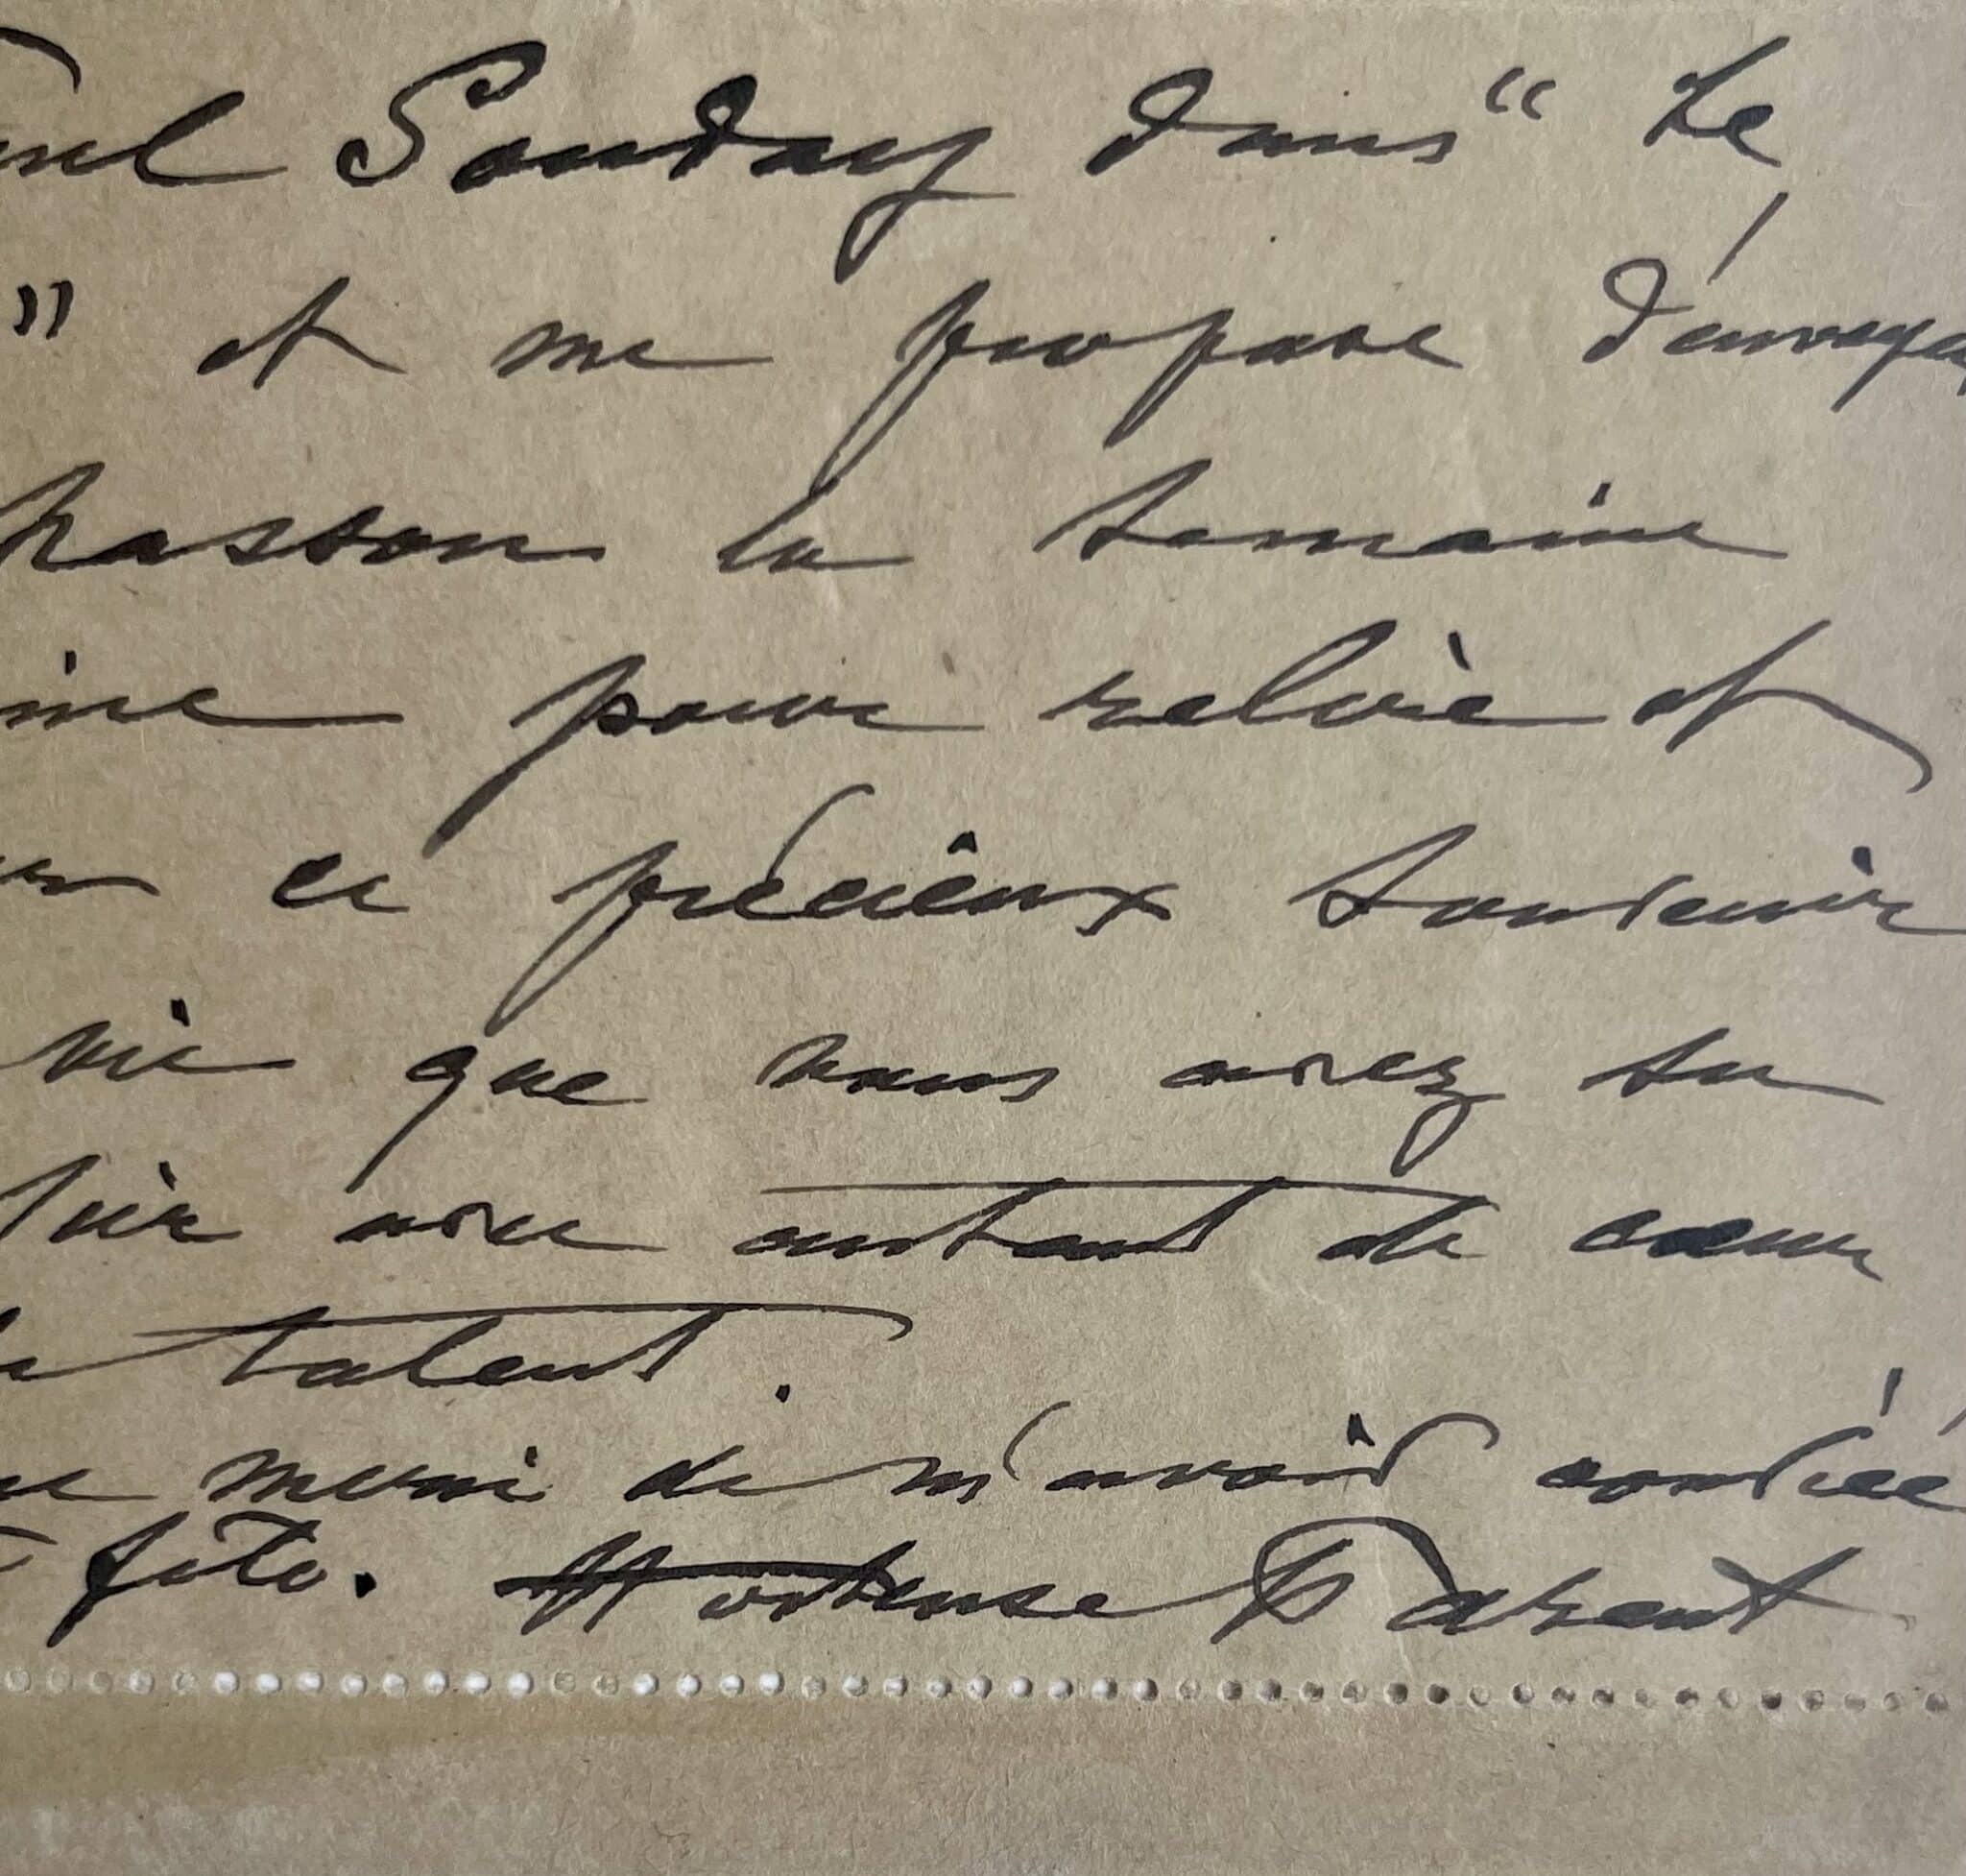 Paul Souday dans " Le
" et me propose d'envoyer
Chasson la semaine
ine pour relire et
er ce précieux souvenir
vie que vous avez su
lir avec autant de cœur
de talent.
ue merci de m'avoir confiée
foto. Hortense Parent